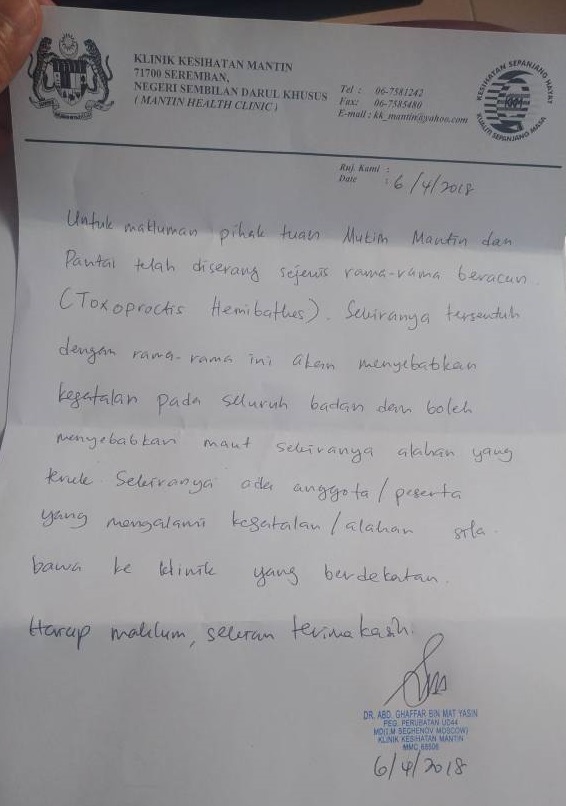 KLINIK KESIHATAN MANTIN
71700 SEREMBAN,
NEGERI SEMBILAN DARUL KHUSUS
( MANTIN HEALTH CLINIC )
Tel : 06-7581242
Fax: 06-7585480
E-mail : kk_mantin@yahoo.com
KESIHATAN SEPANJANG HAYAT
KKM
KUALITI SEPANJANG MASA
Ruj. Kami :
Date : 6/4/2018
Untuk makluman pihak tuan Mukim Mantin dan
Pantai telah diserang sejenis rama-rama beracun.
(Toxoproctis Hemibathes). Sekiranya tersentuh
dengan rama-rama ini akan menyebabkan
kegatalan pada seluruh badan dan boleh
menyebabkan maut sekiranya alahan yang
teruk. Sekiranya ada anggota/peserta
yang mengalami kegatalan/alahan sila
bawa ke klinik yang berdekatan.
Harap maklum, sekian terima kasih.
DR. ABD. GHAFFAR BIN MAT YASIN
PEG. PERUBATAN UD44
MD(I.M SECHENOV MOSCOW)
KLINIK KESIHATAN MANTIN
MMC
6/4/2018